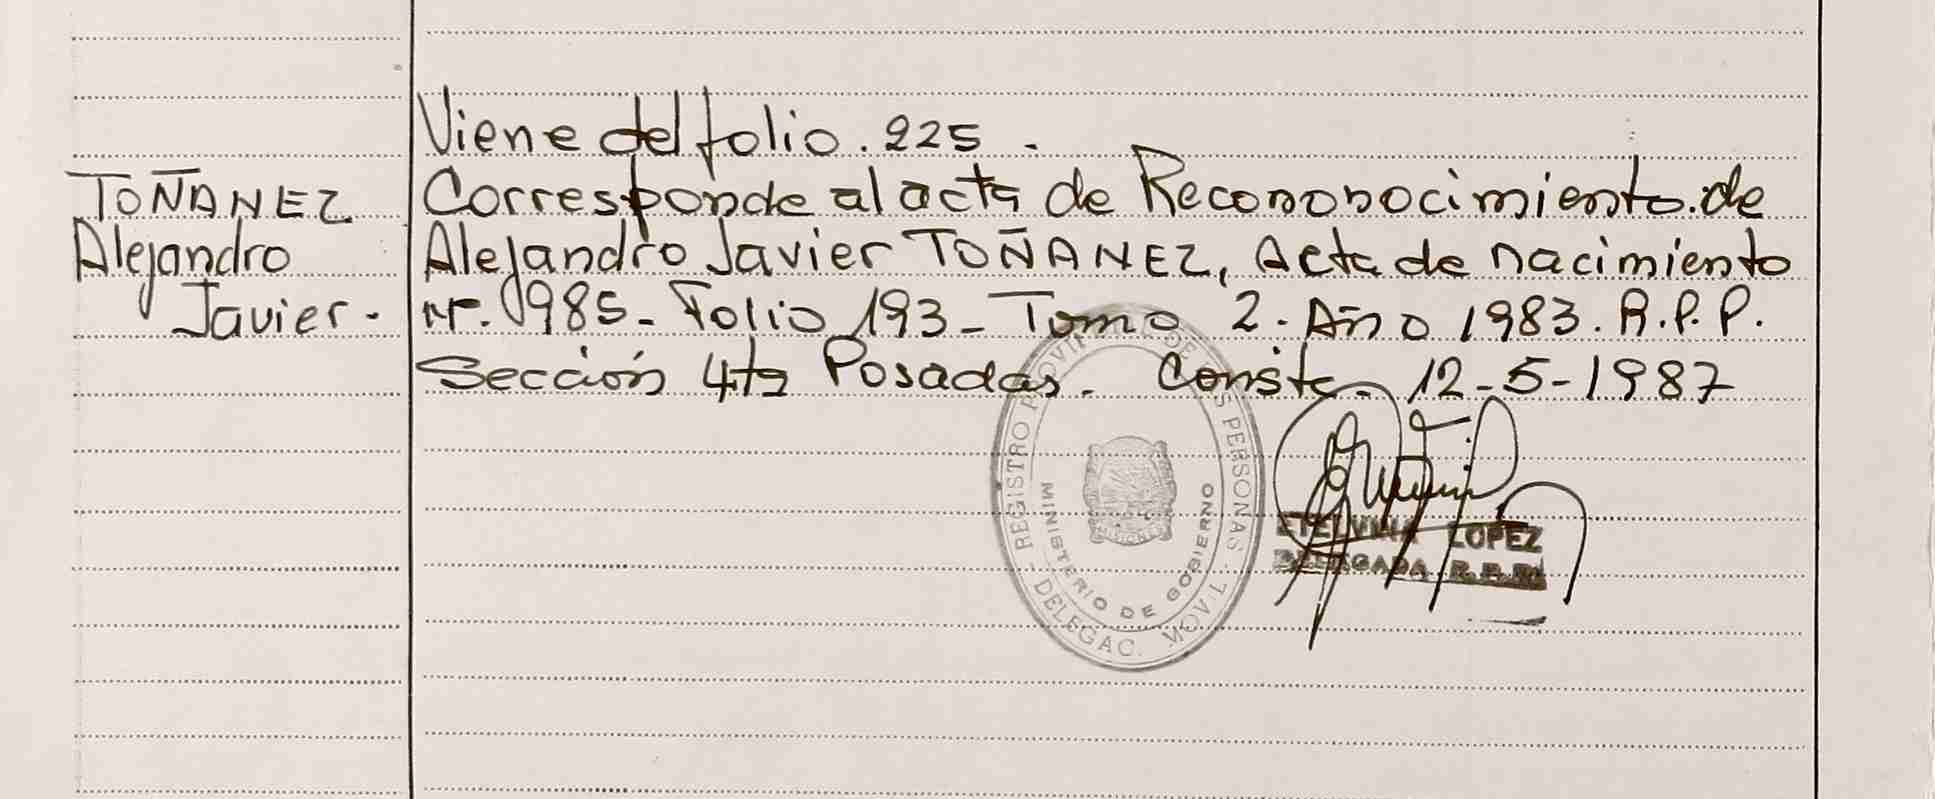 Viene del folio. 225 -
TOÑANEZ
Alejandro
Javier.
Corresponde al acta de Recononocimiento de
Alejandro Javier TOÑANEZ, Acta de nacimiento
nº. 985- Folio 193- Tomo 2. Año 1983. R.P.P.
Sección 4ta Posadas. Conste 12-5-1987
REGISTRO PROVINCIAL DE LAS PERSONAS
MINISTERIO DE GOBIERNO
DELEGAC. MOVIL
MISIONES
ETELVINA LOPEZ
DELEGADA R.P.P.